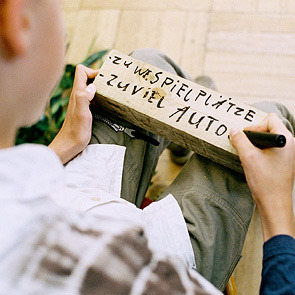 ·ZU WE. SPIELPLÄTZE
·ZU VIEL AUTO.